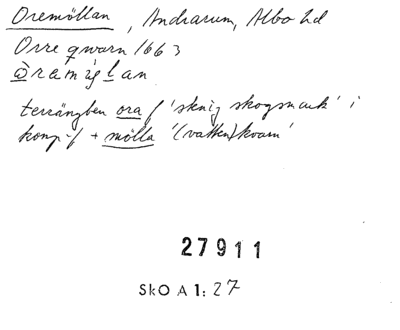 Oremöllan, Andrarum, Albo hd
Orre qwarn 1663
òremöлlan
terrängben ora f 'stenig skogsmark' i
komp-f + mölla '(vatten)kvarn'
27911
Sko A 1: 27